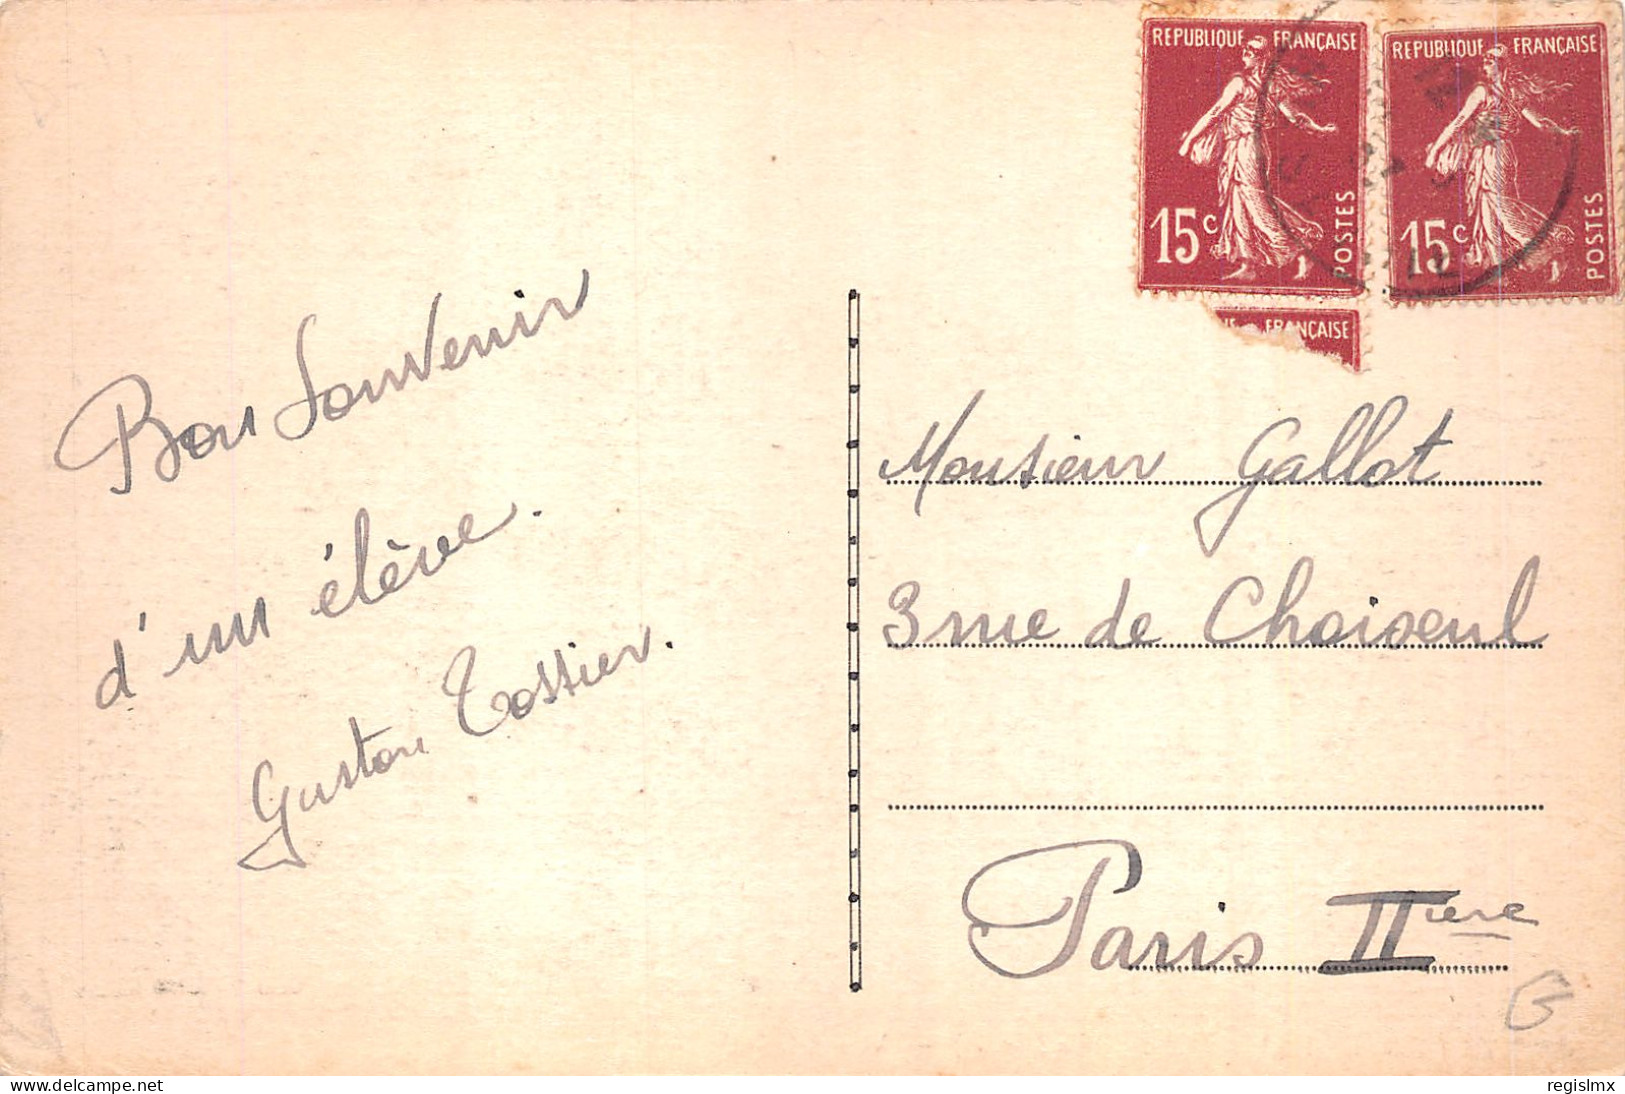 REPUBLIQUE FRANÇAISE
15c
POSTES
REPUBLIQUE FRANÇAISE
15c
POSTES
FRANÇAISE
Bon Souvenir
d'un élève.
Gaston Tossier.
Monsieur Gallot
3 rue de Choiseul
Paris IIière
delcampe.net
regislmx